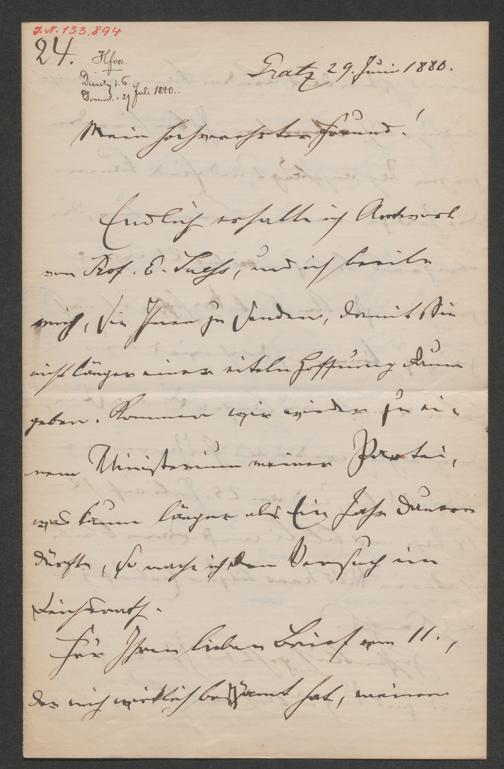 I.N. 133.894
24.
Gratz 29. Juni 1880.
Juli 1880.
Mein hochverehrter Freund!
Endlich erhalte ich Antwort
von Prof. E. Suess, und ich beeile
mich, sie Ihnen zu senden, damit Sie
nicht länger einer eiteln Hoffnung Raum
geben. Kommen wir wieder zu ei-
nem Ministerium meiner Partei,
was kaum länger als Ein Jahr dauern
dürfte, so mache ich den Versuch im
Reichsrath.
Für Ihren lieben Brief vom 11.,
der mich wirklich beschämt hat, meinen